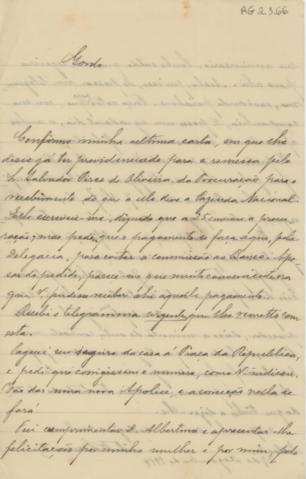 AG 2.3.66
Gordo
Confirmo minha ultima carta, em que lhe
disse já ter providenciado para a remessa pelo
Sr. Salvador Pires de Oliveira, da procuração para o
recebimento do que a elle deve a Fazenda Nacional
escreveu-me, dizendo que a 25 enviou a procu-
ração; mas pede que o pagamento se faça aqui, pela
Delegacia, para evitar a commissão ao Banco. Ape-
sar do pedido, parece-me que muito conveniente se-
ria que V. pudesse receber ahi aquelle pagamento.
Recebi o telegramma urgente, que lhe remetto com
esta.
Paguei o seguro da casa á Praça da Republica,
e pedi que corrigissem o numero, como V. indicou.
nova Apolice, e a correcção nella se
fará.
Fui cumprimentar D. Albertina e apresentar-lhe
felicitações por minha mulher e por mim, pelo